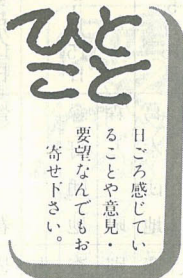 ひとこと
日ごろ感じてい
ることや意見・
要望なんでもお
寄せ下さい。